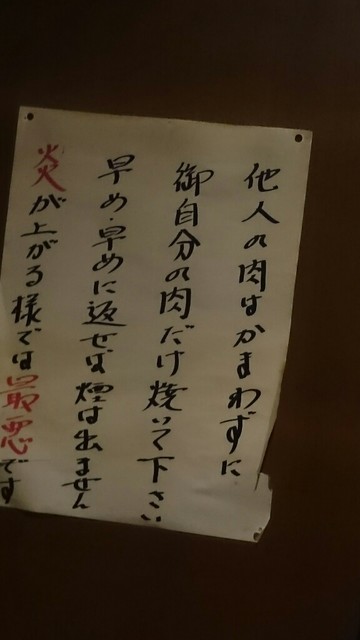 他人の肉はかまわずに
御自分の肉だけ焼いて下さい
早め・早めに返せば煙は出ません
炎が上がる様では最悪です